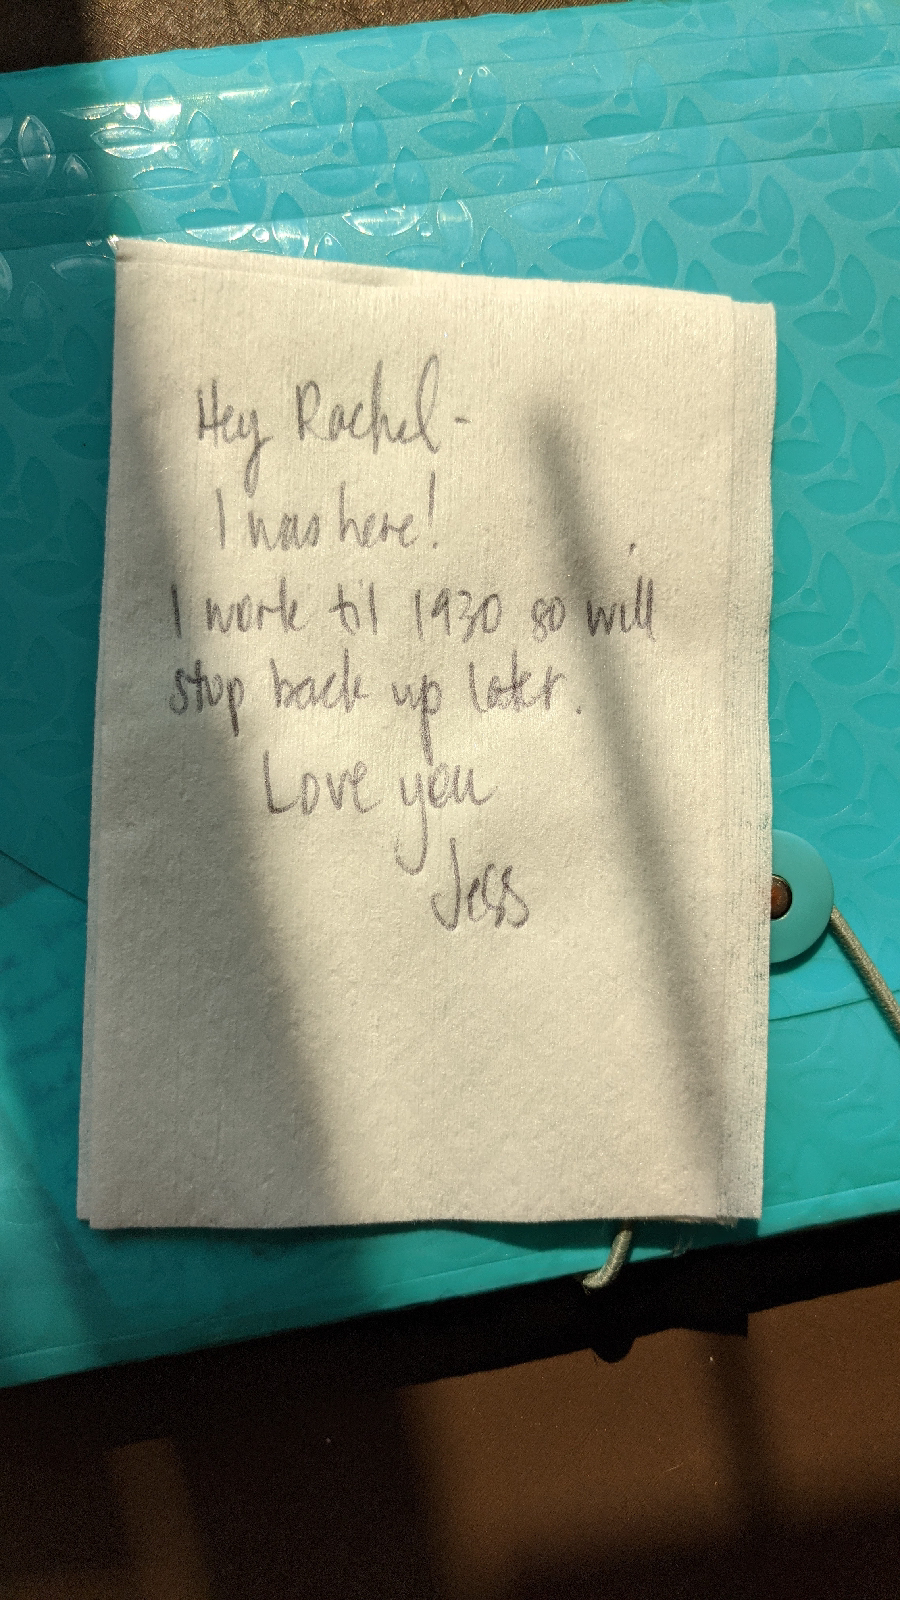 Hey Rachel-
I was here!
I work til 1930 so will
stop back up later.
Love you
Jess